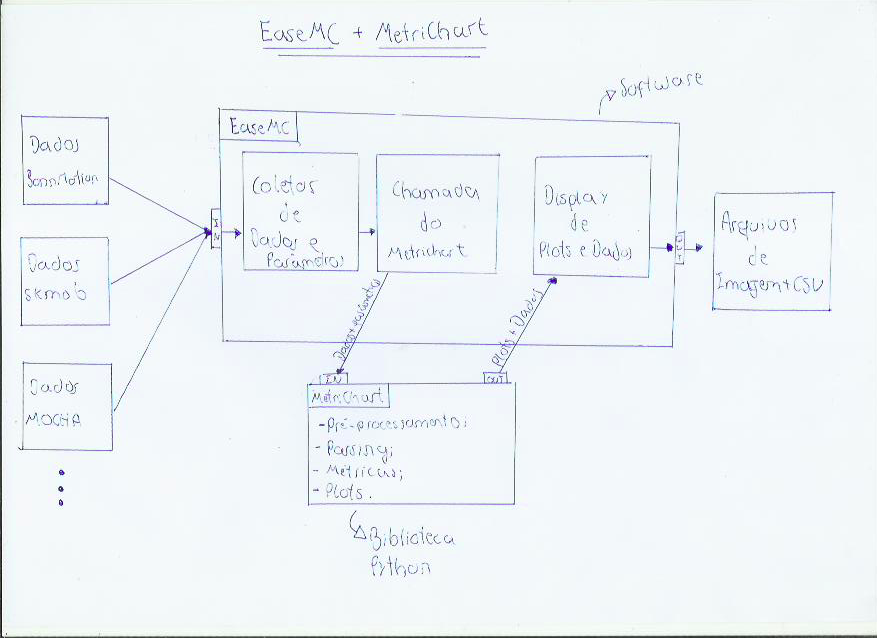 EaseMC + MetriChart
Software
Dados
BonnMotion
Dados
SKmob
Dados
MOCHA
EaseMC
IN
Coletor
de
Dados e
Parâmetros
Chamada
do
Metrichart
Display
de
Plots e Dados
OUT
Arquivos
de
Imagem+CSV
Dados+parâmetros
Plots + Dados
IN
OUT
MetriChart
-Pré-processamento;
- Parsing;
- Métricas;
- Plots.
Biblioteca
Python